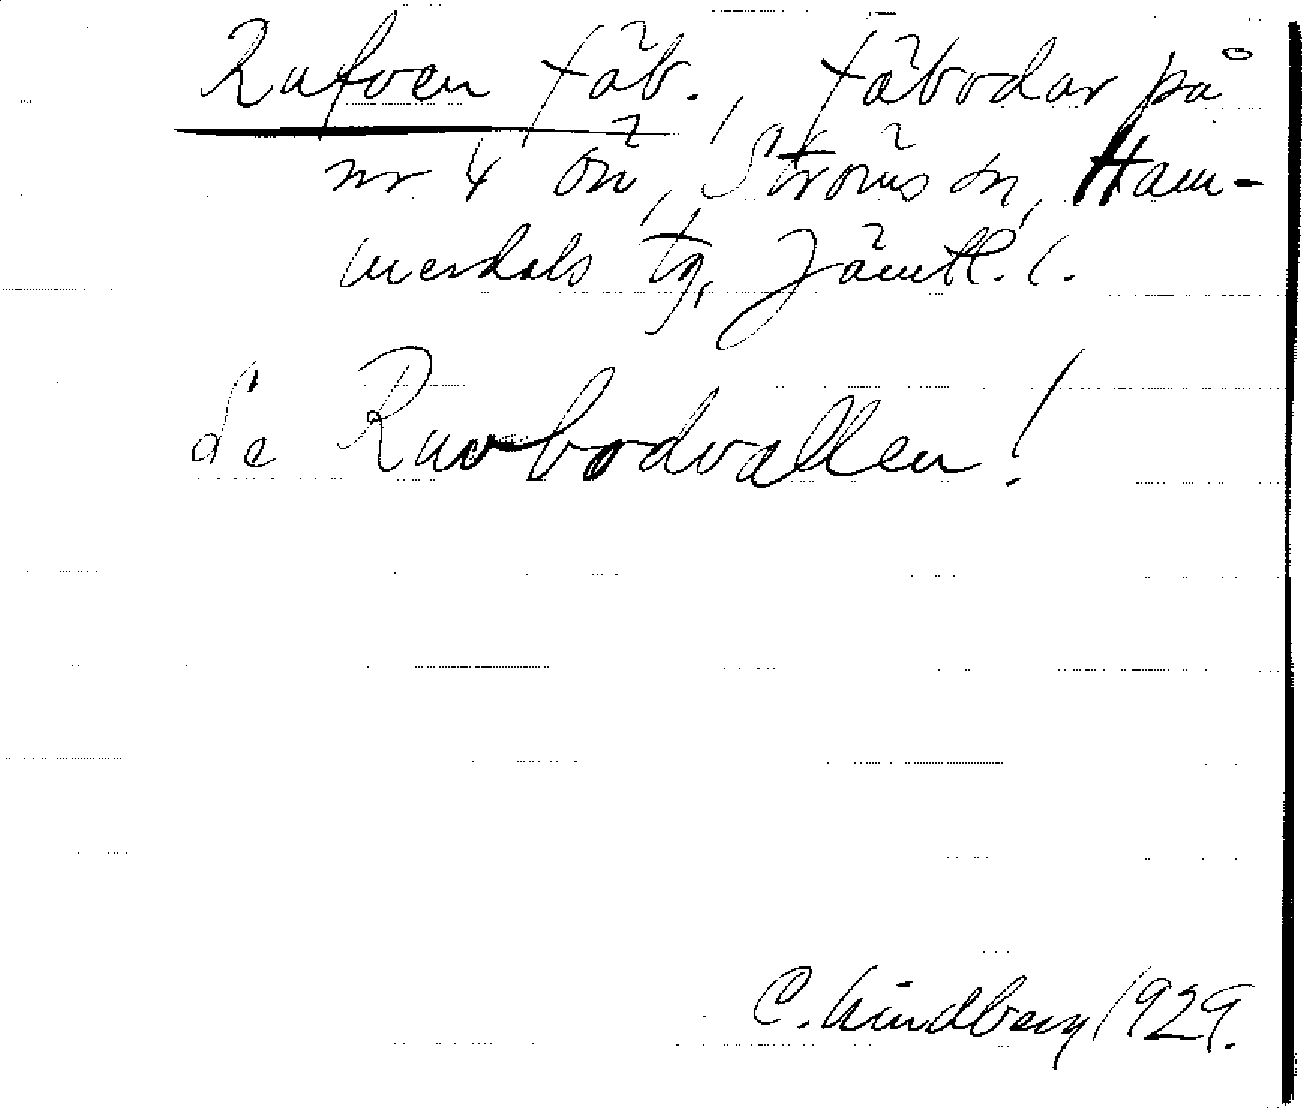 Rufven fäb., fäbodar på
nr 4 Ön, Ströms sn, Ham-
merdals tg, Jämtl. l.
Se Ruvbodvallen!
C. Lindberg 1929.